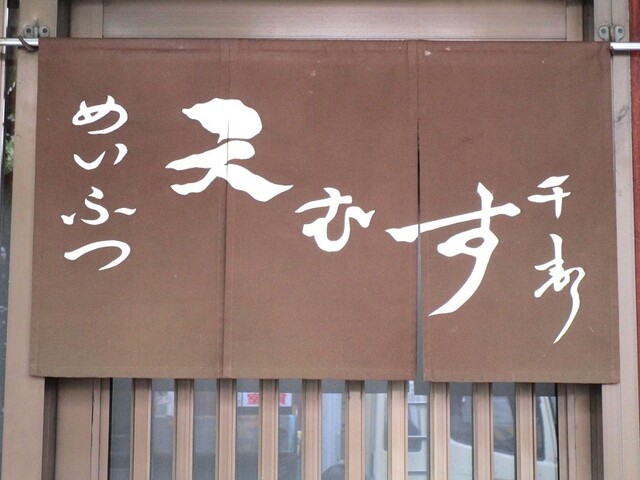 めいふつ
天むす
千寿